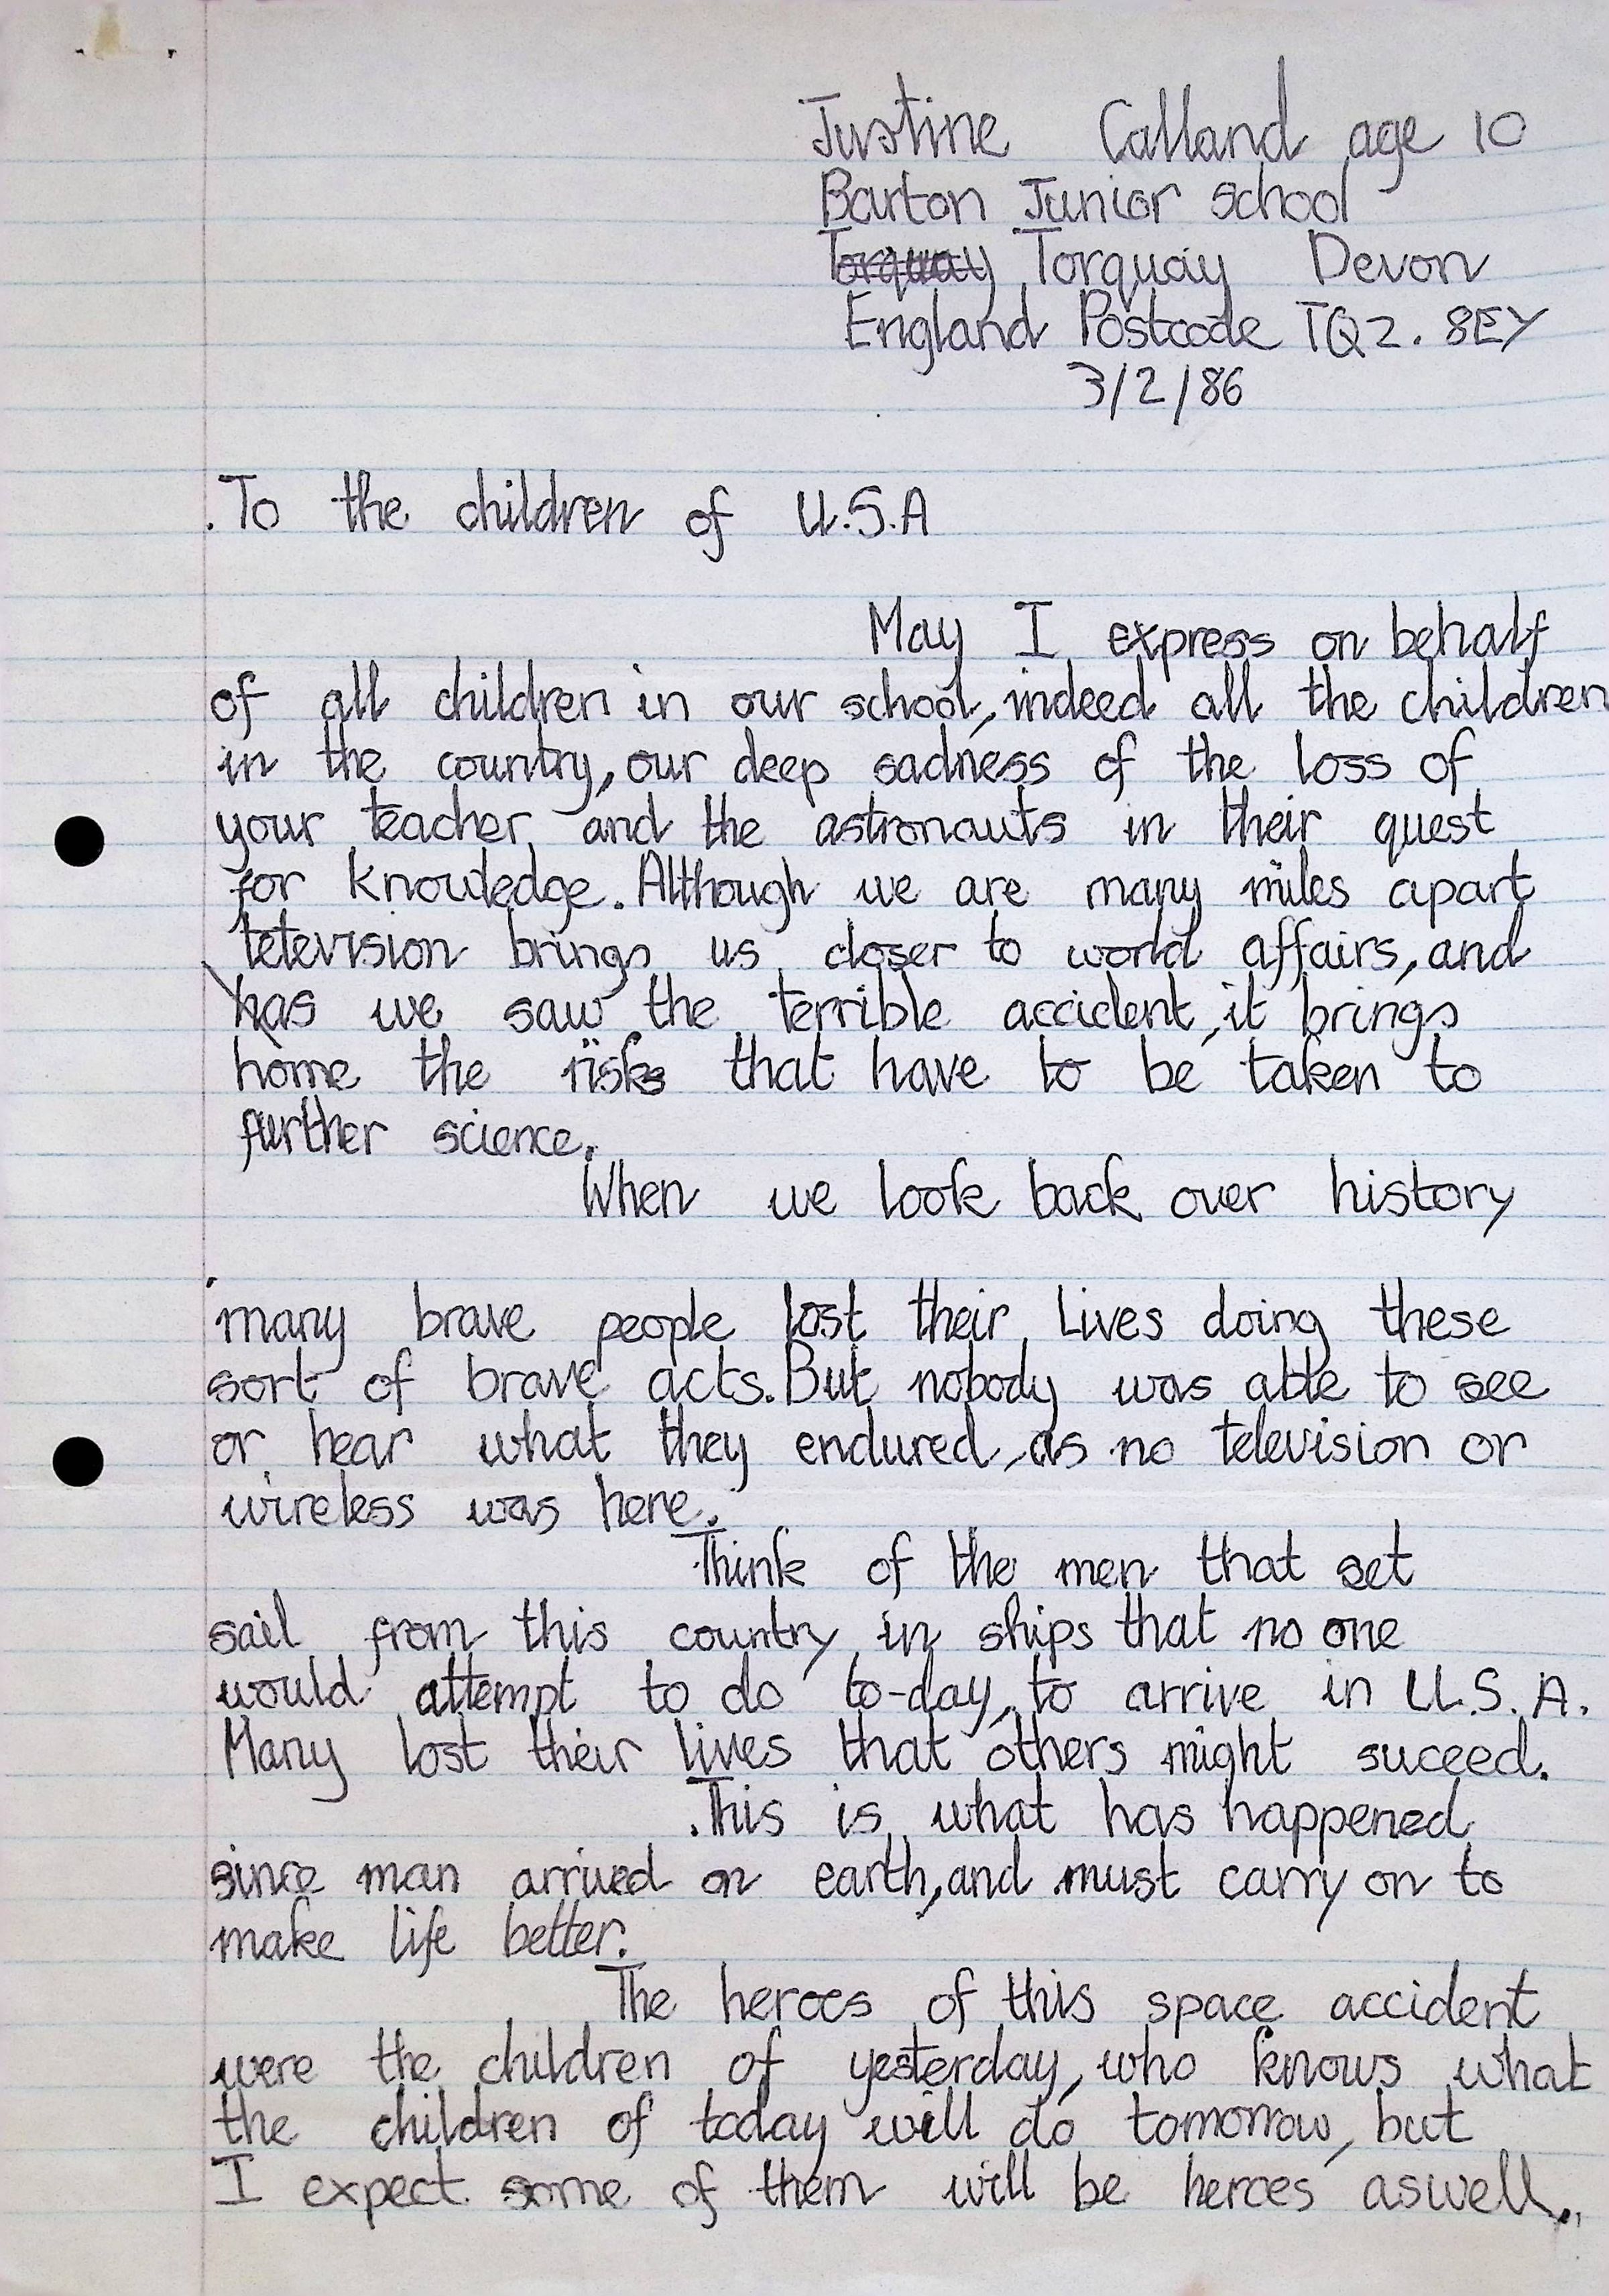 Justine Calland age 10
Barton Junior school
Torquay Torquay Devon
England Postcode TQ2. 8EY
3/2/86
.To the children of U.S.A
May I express on behalf
of all children in our school, indeed all the children
in the country, our deep sadness of the loss of
your teacher and the astronauts in their quest
for knowledge. Although we are many miles apart
television brings us closer to world affairs, and
has we saw the terrible accident, it brings
home the risks that have to be taken to
further science.
When we look back over history
many brave people lost their lives doing these
sort of brave acts. But nobody was able to see
or hear what they endured, as no television or
wireless was here.
Think of the men that set
sail from this country in ships that no one
would attempt to do to-day, to arrive in U.S.A.
Many lost their lives that others might suceed.
.This is what has happened
since man arrived on earth, and must carry on to
make life better.
The heroes of this space accident
were the children of yesterday, who knows what
the children of today will do tomorrow, but
I expect some of them will be heroes aswell.